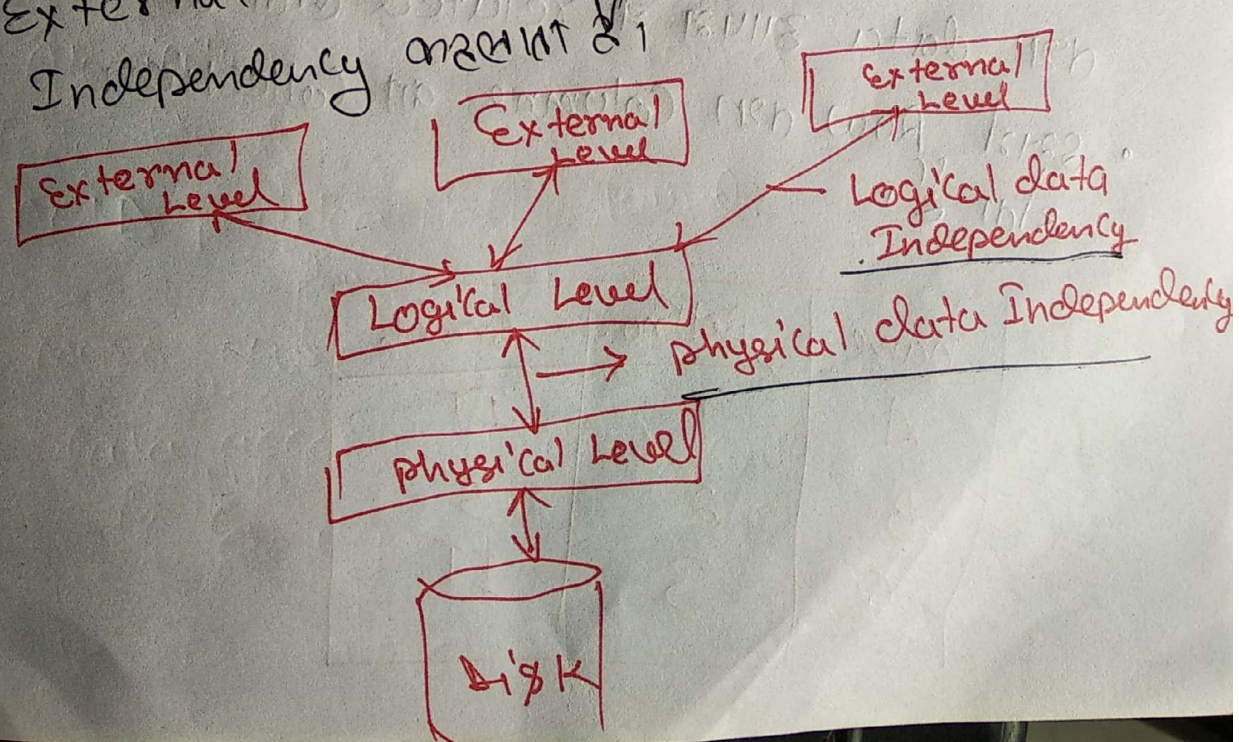 Independency कहलाता है।
External
Level
External
Level
External
Level
Logical data
Independency
Logical Level
physical data Independency
physical Level
Disk